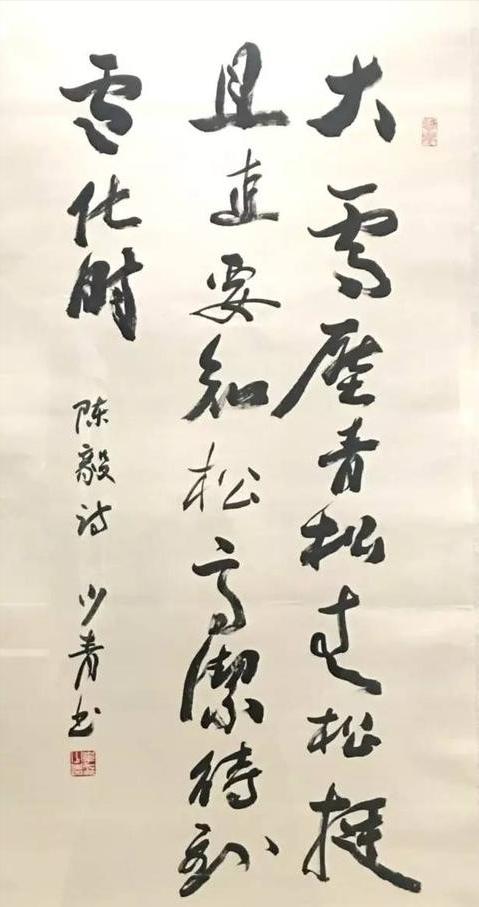 大雪壓青松青松挺
且直要知松高潔待到
雪化时
陈毅诗 少青书